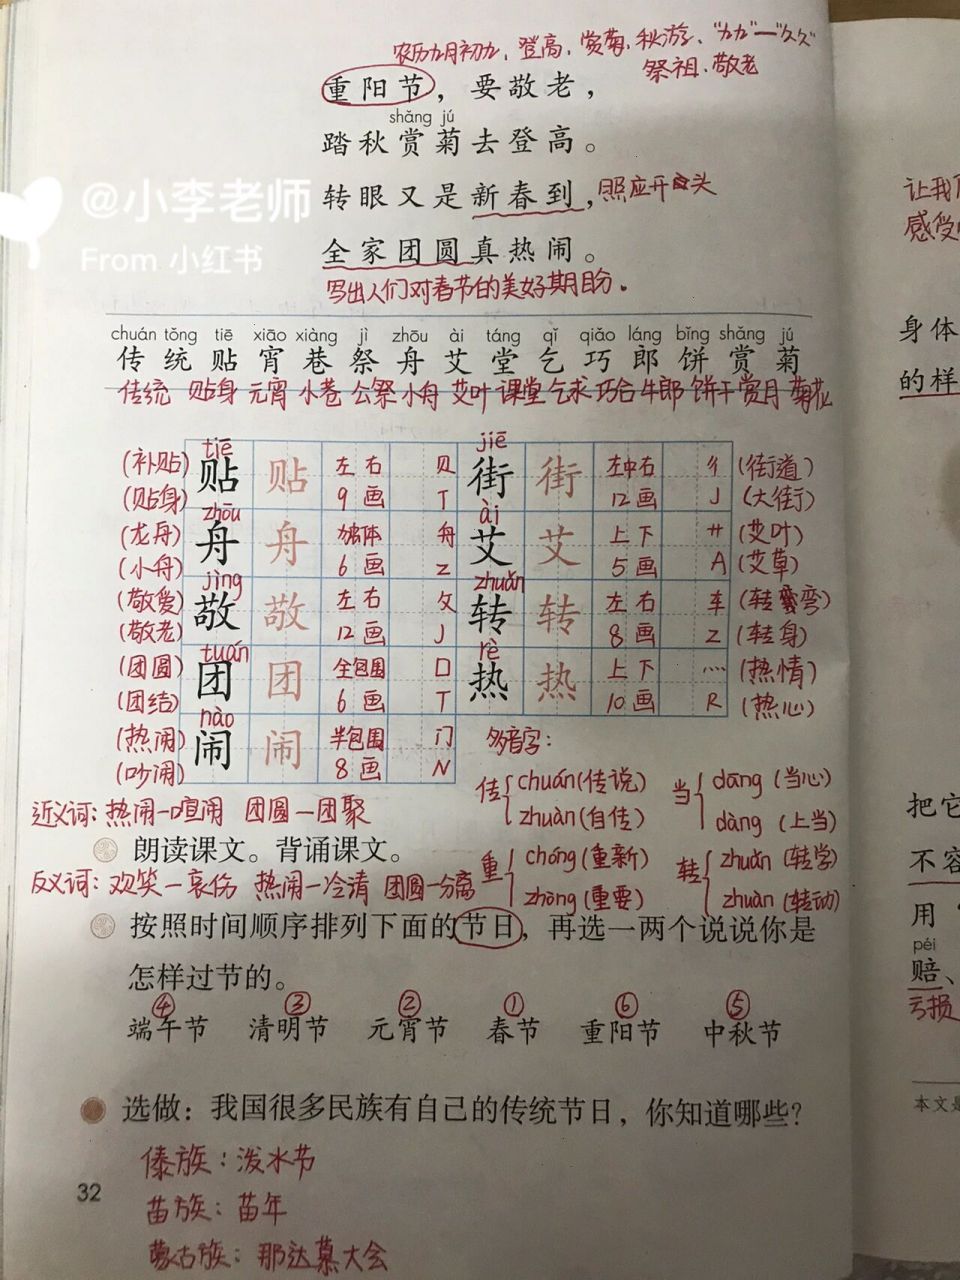 农历九月初九、登高、赏菊、秋游、"九九"—"久久"
祭祖、敬老
重阳节，要敬老，
shǎng jú
踏秋赏菊去登高。
转眼又是新春到，照应开头
全家团圆真热闹。
写出人们对春节的美好期盼。
@小李老师
From 小红书
chuán tǒng tiē xiāo xiàng jì zhōu ài táng qǐ qiǎo láng bǐng shǎng jú
传 统 贴 宵 巷 祭 舟 艾 堂 乞 巧 郎 饼 赏 菊
传统 贴身 元宵 小巷 公祭 小舟 艾叶 课堂 乞求 巧合 牛郎 饼干 赏月 菊花
tiē jiē
(补贴) 贴 贴 左右 贝 街 街 左中右 彳 (街道)
(贴身) 9画 T 12画 J (大街)
zhōu ài
(龙舟) 舟 舟 独体 舟 艾 艾 上下 艹 (艾叶)
(小舟) 6画 Z 5画 A (艾草)
jìng zhuǎn
(敬爱) 敬 敬 左右 攵 转 转 左右 车 (转弯)
(敬老) 12画 J 8画 Z (转身)
tuán rè
(团圆) 团 团 全包围 囗 热 热 上下 灬 (热情)
(团结) 6画 T 10画 R (热心)
nào
(热闹) 闹 闹 半包围 门
(吵闹) 8画 N
多音字：
传 chuán(传说) zhuàn(自传)
当 dāng(当心) dàng(上当)
重 chóng(重新) zhòng(重要)
转 zhuǎn(转学) zhuàn(转动)
近义词：热闹—喧闹 团圆—团聚
朗读课文。背诵课文。
反义词：欢笑—哀伤 热闹—冷清 团圆—分离
按照时间顺序排列下面的节日，再选一两个说说你是
怎样过节的。
④ ③ ② ① ⑥ ⑤
端午节 清明节 元宵节 春节 重阳节 中秋节
选做：我国很多民族有自己的传统节日，你知道哪些？
傣族：泼水节
苗族：苗年
蒙古族：那达慕大会
32
让我
感受
身体
的样
把它
不容
用
péi
赔、
亏损
本文是